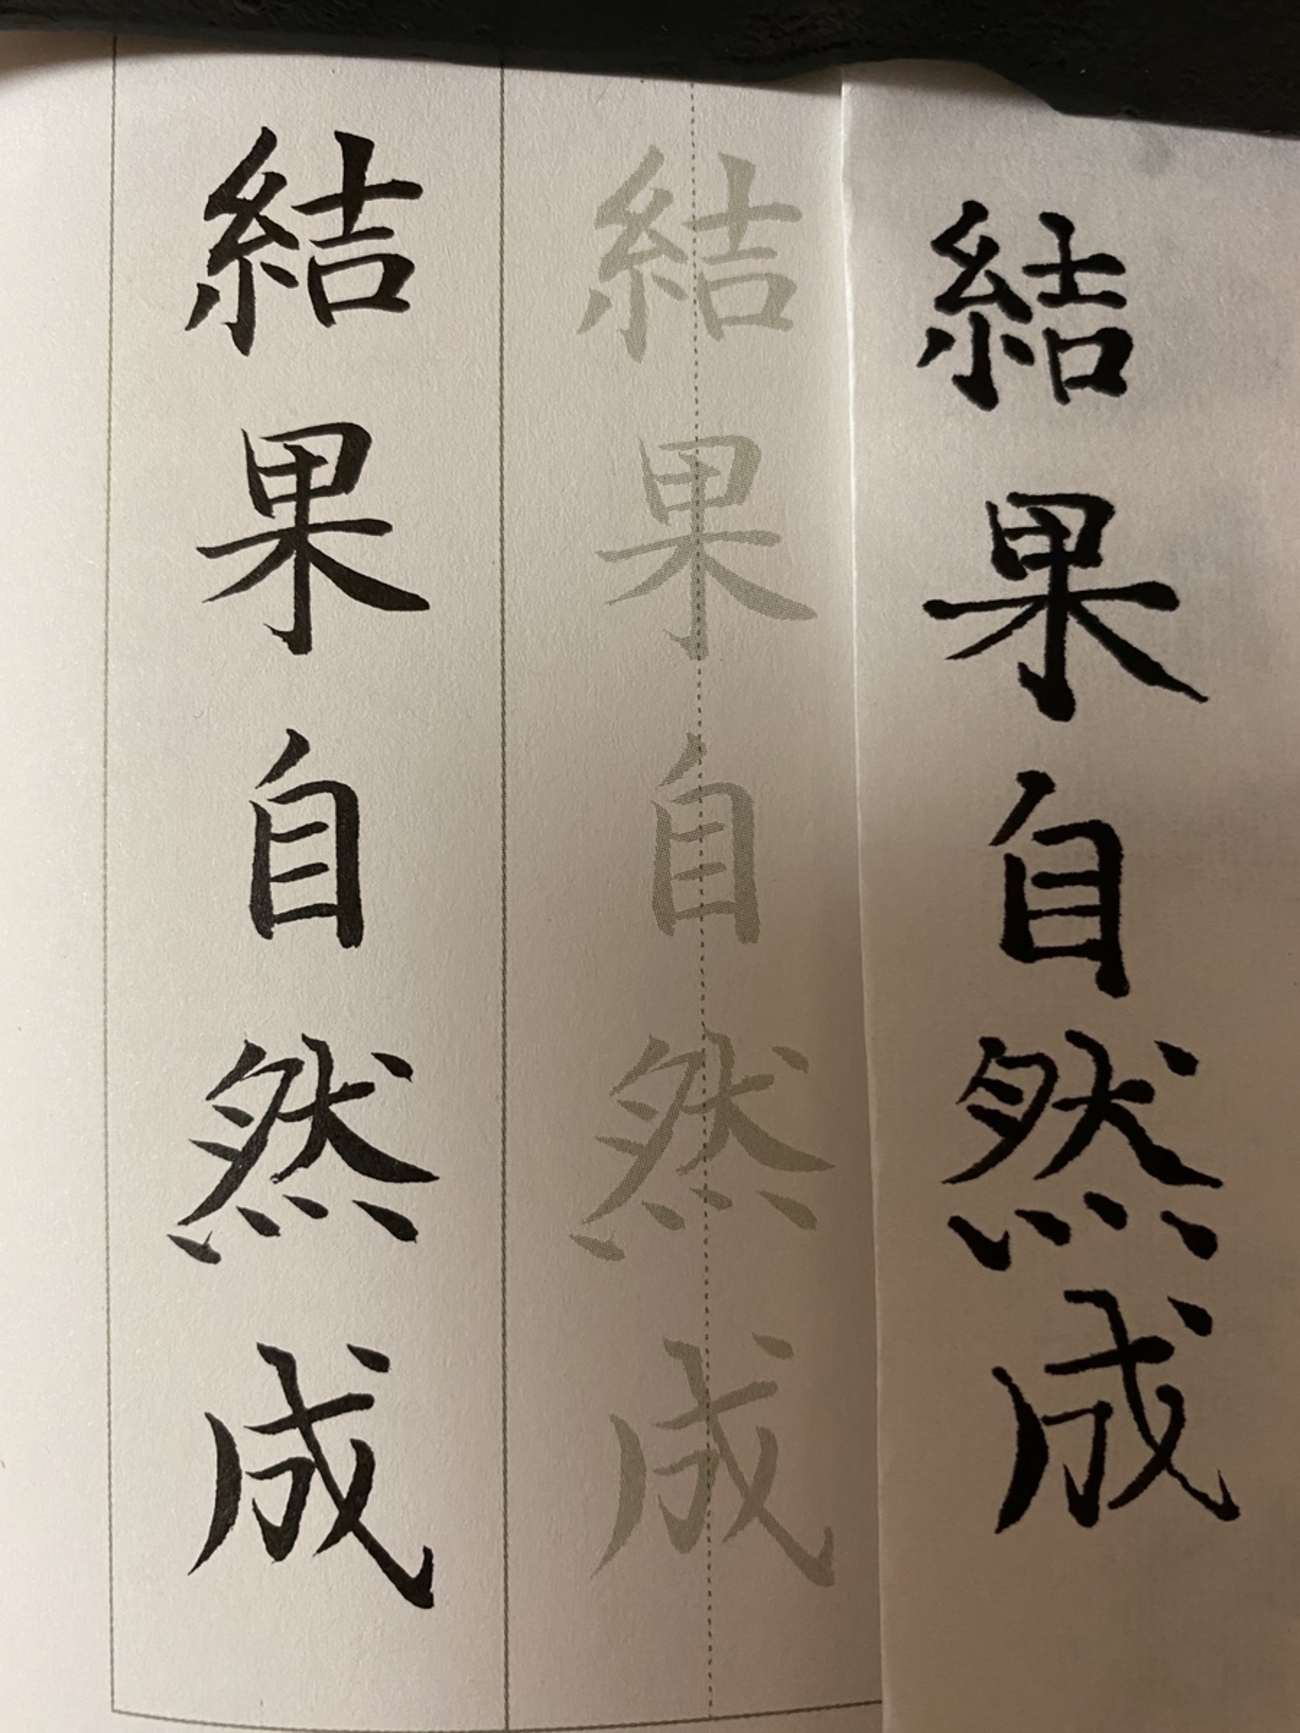 結果自然成
結果自然成
結果自然成